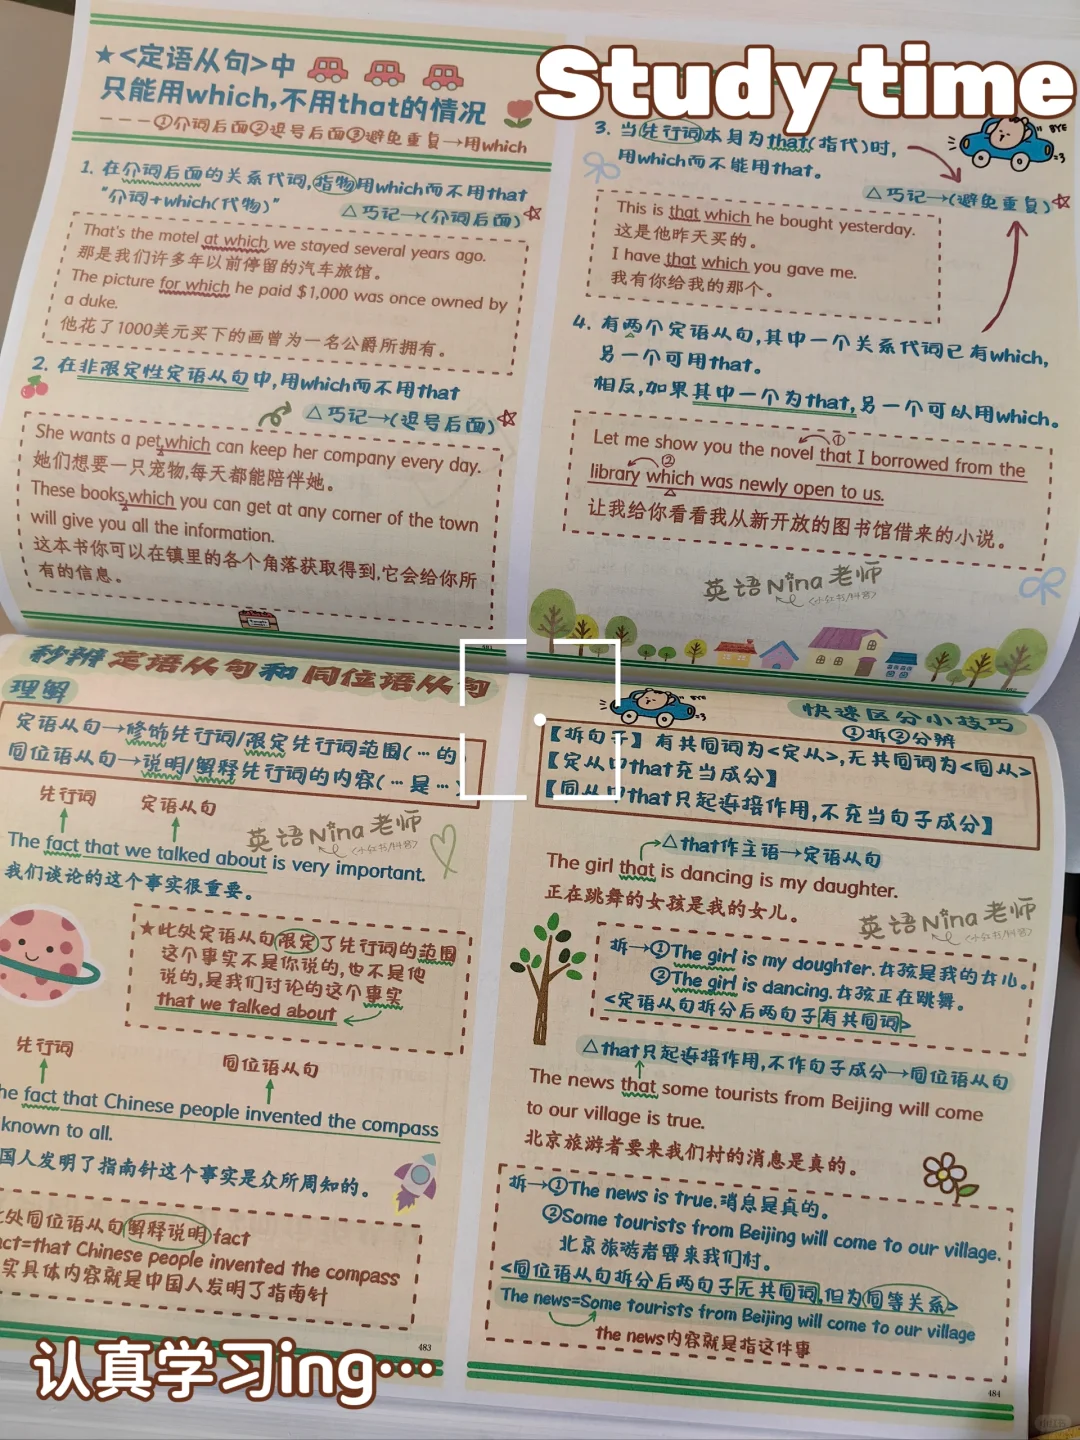 Study time
★<定语从句>中
只能用which,不用that的情况
---①介词后面②逗号后面③避免重复→用which
1. 在介词后面的关系代词,指物用which而不用that
“介词+which(代物)”
△巧记→(介词后面)
That's the motel at which we stayed several years ago.
那是我们许多年以前停留的汽车旅馆。
The picture for which he paid $1,000 was once owned by
a duke.
他花了1000美元买下的画曾为一名公爵所拥有。
2. 在非限定性定语从句中,用which而不用that
△巧记→(逗号后面)
She wants a pet,which can keep her company every day.
她们想要一只宠物,每天都能陪伴她。
These books,which you can get at any corner of the town
will give you all the information.
这本书你可以在镇里的各个角落获取得到,它会给你所
有的信息。
3. 当先行词本身为that(指代)时,
用which而不能用that。
BYE
=3
△巧记→(避免重复)
This is that which he bought yesterday.
这是他昨天买的。
I have that which you gave me.
我有你给我的那个。
4. 有两个定语从句,其中一个关系代词已有which,
另一个可用that。
相反,如果其中一个为that,另一个可以用which。
①
Let me show you the novel that I borrowed from the
②
library which was newly open to us.
让我给你看看我从新开放的图书馆借来的小说。
英语Nina老师
<小红书/抖音>
秒辨定语从句和同位语从句
理解
定语从句→修饰先行词/限定先行词范围(…的
同位语从句→说明/解释先行词的内容(…是…)
先行词
定语从句
英语Nina老师
<小红书/抖音>
The fact that we talked about is very important.
我们谈论的这个事实很重要。
★此处定语从句限定了先行词的范围
这个事实不是你说的,也不是他
说的,是我们讨论的这个事实
that we talked about
先行词
同位语从句
he fact that Chinese people invented the compass
known to all.
国人发明了指南针这个事实是众所周知的。
处同位语从句解释说明fact
act=that Chinese people invented the compass
实具体内容就是中国人发明了指南针
483
BYE
=3
快速区分小技巧
①拆②分辨
【拆句子】有共同词为<定从>,无共同词为<同从>
【定从中that充当成分】
【同从中that只起连接作用,不充当句子成分】
△that作主语→定语从句
The girl that is dancing is my daughter.
正在跳舞的女孩是我的女儿。
英语Nina老师
<小红书/抖音>
拆→①The girl is my doughter.女孩是我的女儿。
②The girl is dancing.女孩正在跳舞。
<定语从句拆分后两句子有共同词>
△that只起连接作用,不作句子成分→同位语从句
The news that some tourists from Beijing will come
to our village is true.
北京旅游者要来我们村的消息是真的。
拆→①The news is true.消息是真的。
②Some tourists from Beijing will come to our village.
北京旅游者要来我们村。
<同位语从句拆分后两句子无共同词,但为同等关系>
The news=Some tourists from Beijing will come to our village
the news内容就是指这件事
484
认真学习ing…
小红书